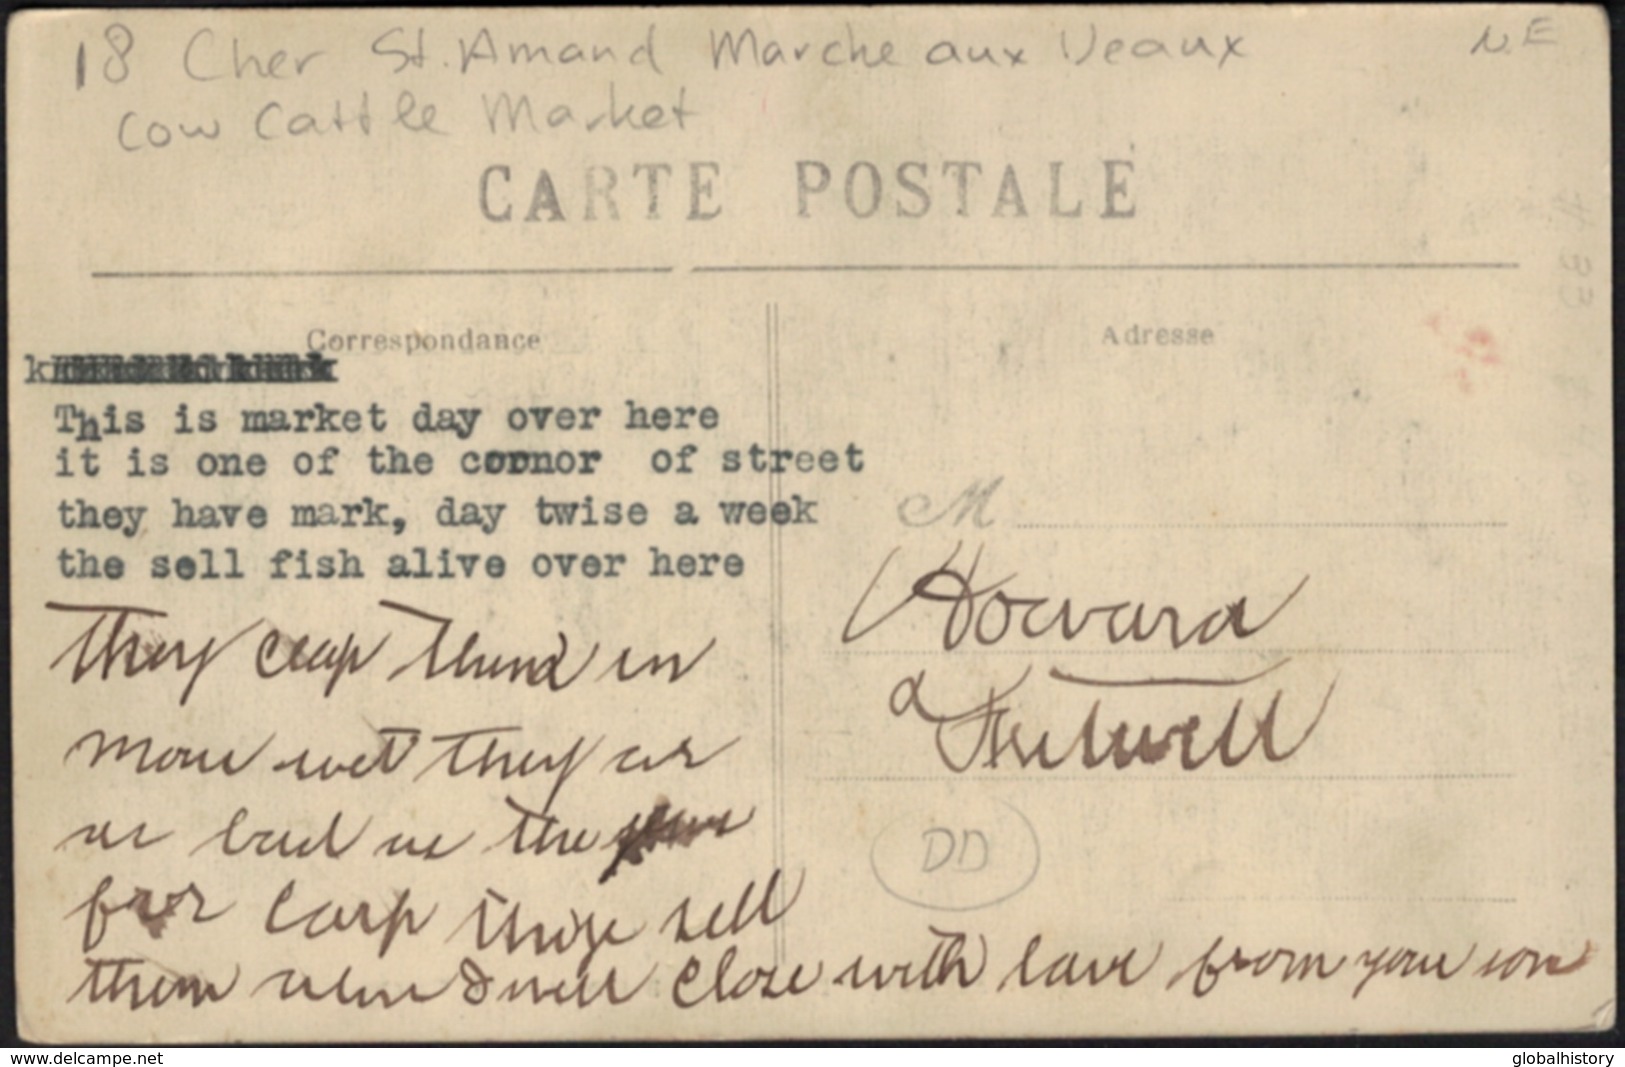 18 Cher St. Amand Marche aux Veaux N.E
Cow Cattle Market
CARTE POSTALE
Correspondance
Adresse
This is market day over here
it is one of the cornor of street
they have mark, day twise a week
the sell fish alive over here
they in
wet they
as bad as the
for carp sell
them I will close with love from your son
M
Howard
DD
# 33
www.delcampe.net
globalhistory